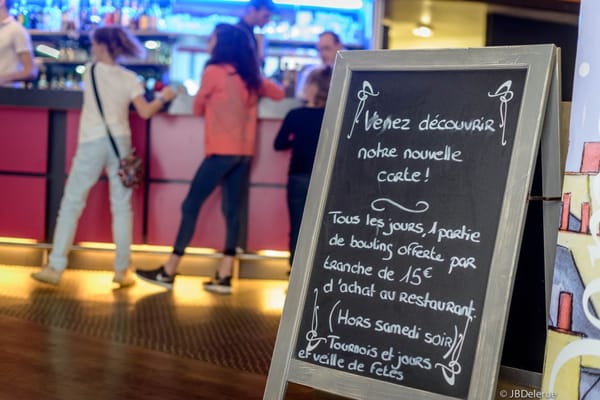 Venez découvrir
notre nouvelle
carte !
Tous les jours, 1 partie
de bowling offerte par
tranche de 15€
d'achat au restaurant.
(Hors samedi soir)
Tournois et jours
et veille de fêtes
© JBDelerue